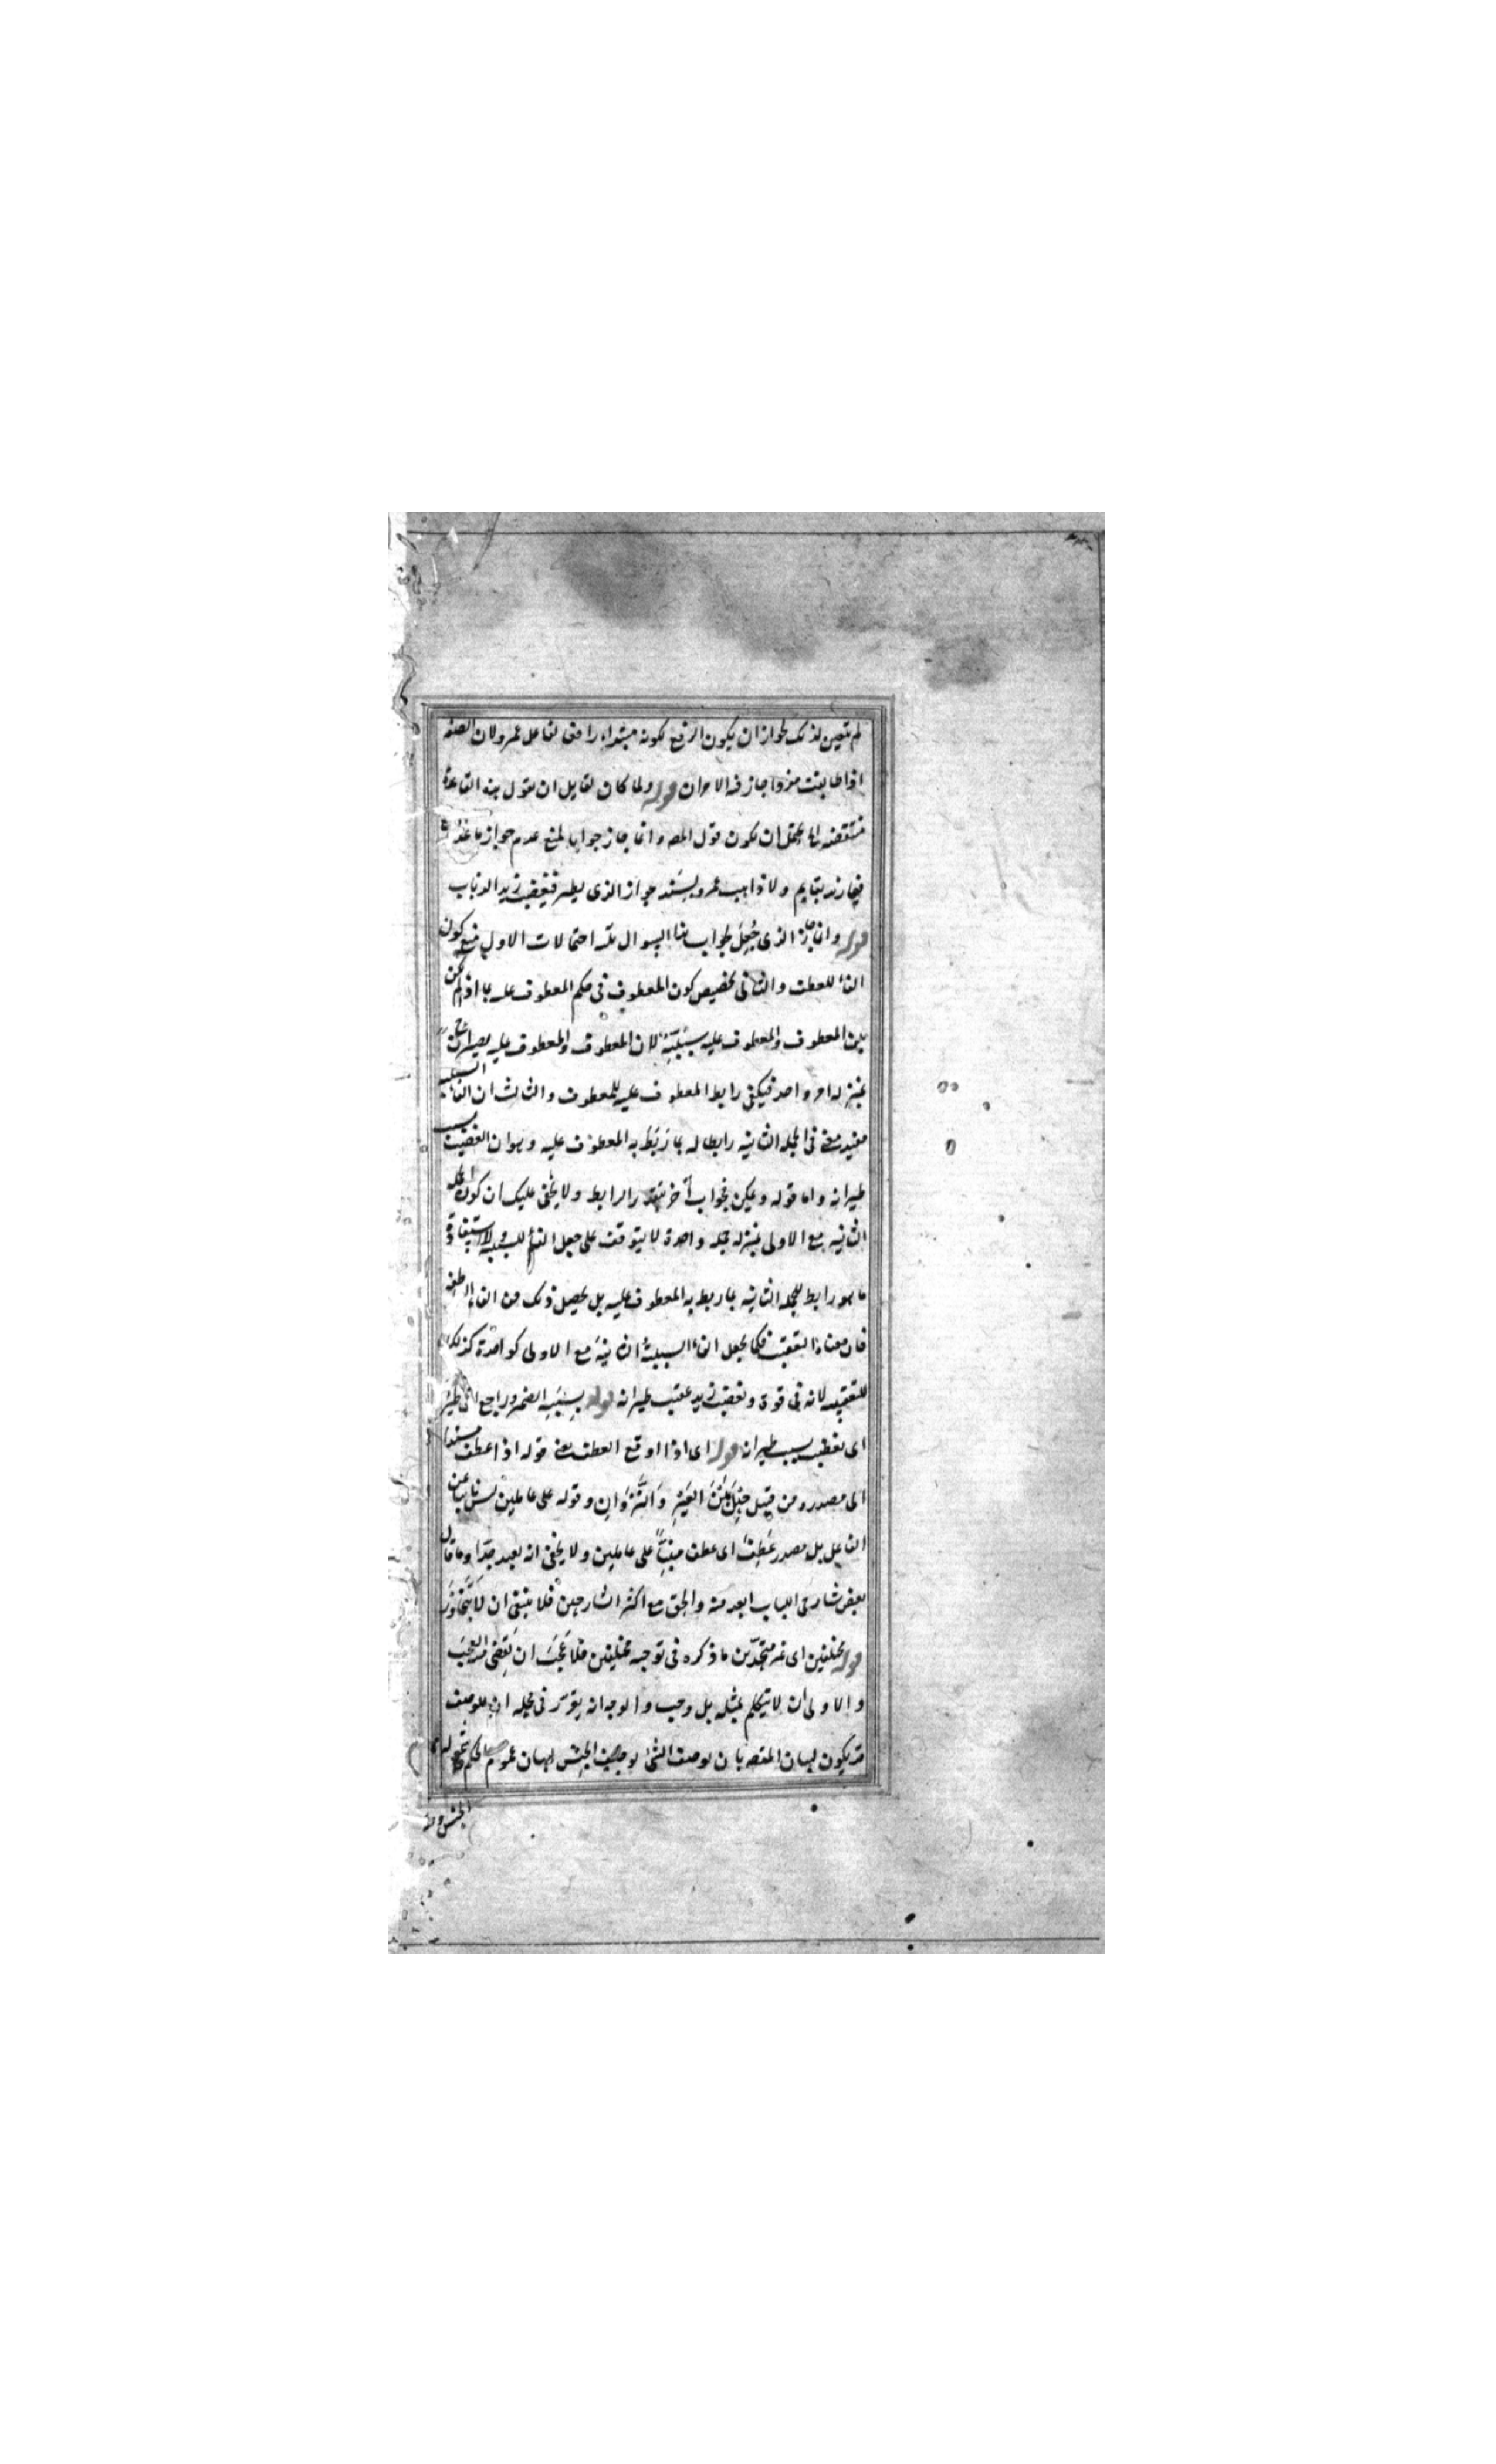 لم يتعين لذلك لجواز ان يكون الرفع لكونه مبتداء رافعا لفاعل عمرو لان الصفه
اذا طابقت مفردا جاز فيه الامران قوله ولما كان لقايل ان يقول هذه القاعدة
منتقضه يحتمل ان يكون قول المصه وانما جاز جوابا لمنع عدم جواز ما عدا
فيما زيد بقايم ولا ذاهب عمرو بسند جواز الذى يطير فيغضب زيد الذباب
قوله وانما جاز الذى جعل جواب هذا السوال ثلثه احتمالات الاول منع كون
الفاء للعطف والثانى تخصيص كون المعطوف فى حكم المعطوف عليه بما اذا لم يكن
بين المعطوف والمعطوف عليه سببيّة لان المعطوف والمعطوف عليه يصيران ح
بمنزله امر واحد فيكفى رابط المعطوف عليه للمعطوف والثالث ان الفاء السببيه
مفيد معنى فى الجمله الثانيه رابطا له بما رُبِط به المعطوف عليه وهو ان الغضب بسبب
طيرانه واما قوله ويمكن فجواب آخر بتقدير الرابط ولا يخفى عليك ان كون الجمله
الثانيه مع الاولى بمنزله جمله واحدة لا يتوقف على جعل الفاء للسببيه ولا استفادة
ما هو رابط للجمله الثانيه بما ربط به المعطوف عليه بل يحصل ذلك من الفاء العاطفه
فان معناه التعقيب فكما يجعل الفاء السببية الثانية مع الاولى كواحدة كذلك
للتعقيبيه لانه فى قوة ويغضب زيد عقيب طيرانه قوله بسببه الضمير راجع الى طير
اى يغضب بسبب طيرانه قوله اى اذا اوقع العطف يعنى قوله اذا عطف مسند
الى مصدره من قبيل حِيلَ بَيْنَ العَيْرِ وَالنَّزَوَانِ وقوله على عاملين ليس نايبا عن
الفاعل بل مصدر عُطِفَ اى عطف مبنيّاً على عاملين ولا يخفى انه بعيد جدّا وما قال
بعض شارحى اللباب ابعد منه والحق مع اكثر الشارحين فلا ينبغى ان لا يتجاوز
قوله مختلفين اى غير متحدّين ما ذكره فى توجيه مختلفين فلا عَجَبَ ان يَقضى منه العجبَ
والاولى ان لا يتكلم بمثله بل وجب والوجه انه يقرّر فى محله ان الوصف
قد يكون لبيان المقصه بان يوصف الشئ بوصف الجنس لبيان عموم الحكم
الجنس وله